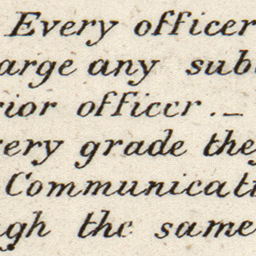 Every officer
arge any sub
rior officer._
ery grade they
Communicati
ugh the same